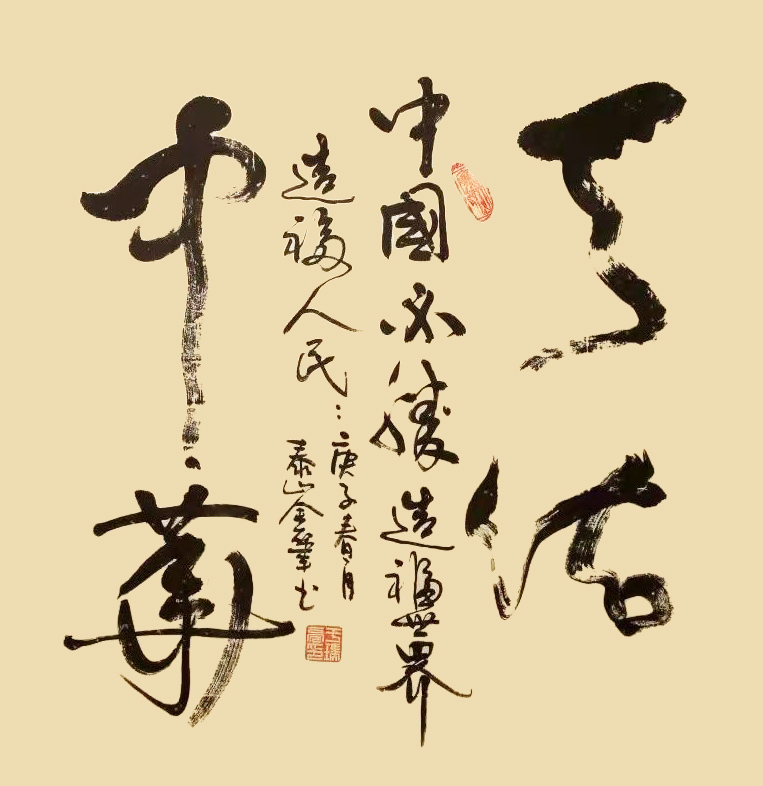 天佑
中國必勝造福世界
造福人民
庚子春月
泰山金筆书
中華